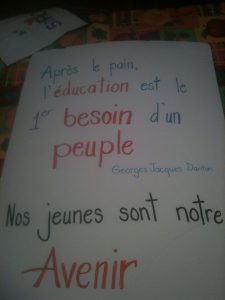 Après le pain,
l'éducation est le
1er besoin d'un
peuple
Georges Jacques Danton
Nos jeunes sont notre
Avenir